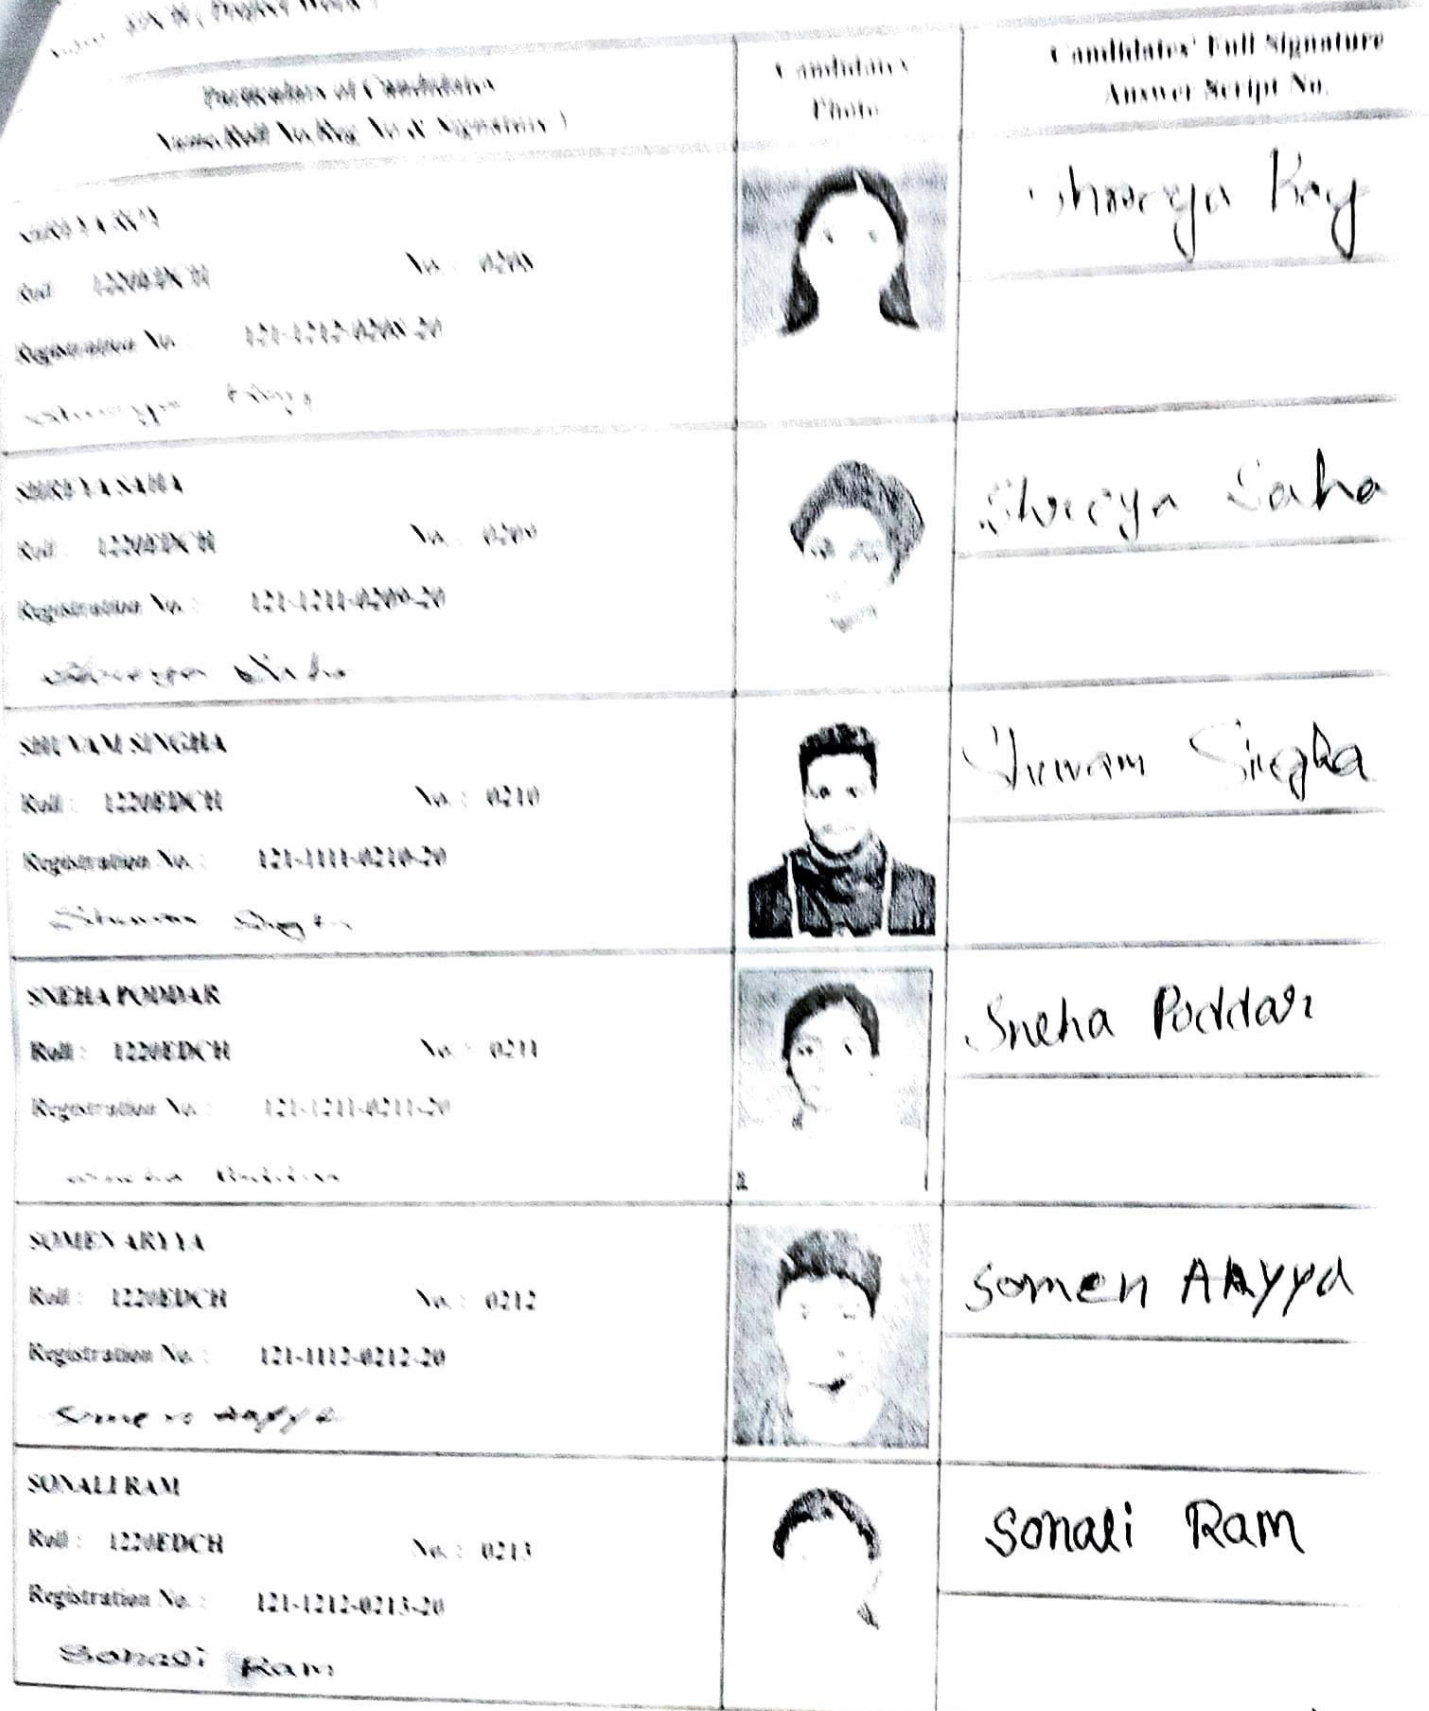 ( Project Work )
Particulars of Candidates
Name,Roll No,Reg No & Signature )
Candidates'
Photo
Candidates' Full Signature
Answer Script No.
Roll : 1220EDCH No. : 0208
Registration No. : 121-1212-0208-20
Shreya Roy
SHREYA SAHA
Roll : 1220EDCH No. : 0209
Registration No. : 121-1211-0209-20
Shreya Saha
Shreya Saha
SHUVAM SINGHA
Roll : 1220EDCH No. : 0210
Registration No. : 121-1111-0210-20
Shuvam Singha
Shuvam Singha
SNEHA PODDAR
Roll : 1220EDCH No. : 0211
Registration No. : 121-1211-0211-20
Sneha Poddar
Sneha Poddar
SOMEN ARYYA
Roll : 1220EDCH No. : 0212
Registration No. : 121-1112-0212-20
Somen Aryya
Somen Aryya
SONALI RAM
Roll : 1220EDCH No. : 0213
Registration No. : 121-1212-0213-20
Sonali Ram
Sonali Ram